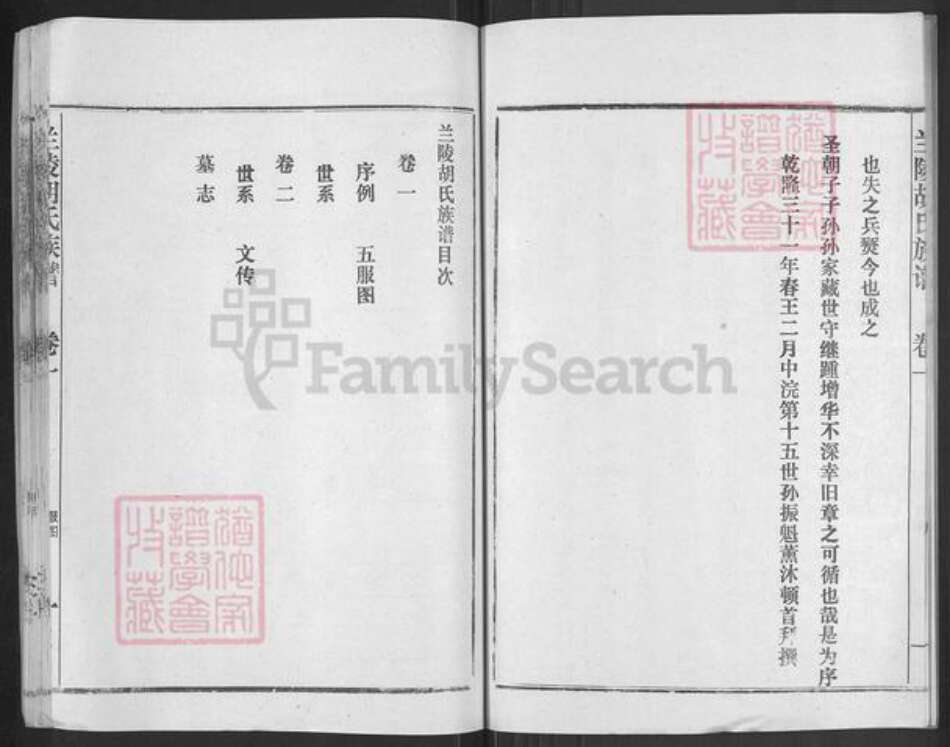 兰陵胡氏族谱 卷一
也失之兵燹今也成之
圣朝子子孙孙家藏世守继踵增华不深幸旧章之可循也哉是为序
乾隆三十一年春王二月中浣第十五世孙振魁薰沐顿首拜撰
兰陵胡氏族谱目次
卷一
序例 五服图
世系
卷二
世系 文传
墓志
兰陵胡氏族谱 卷一
一
FamilySearch
譜學會
收藏
譜學會
收藏